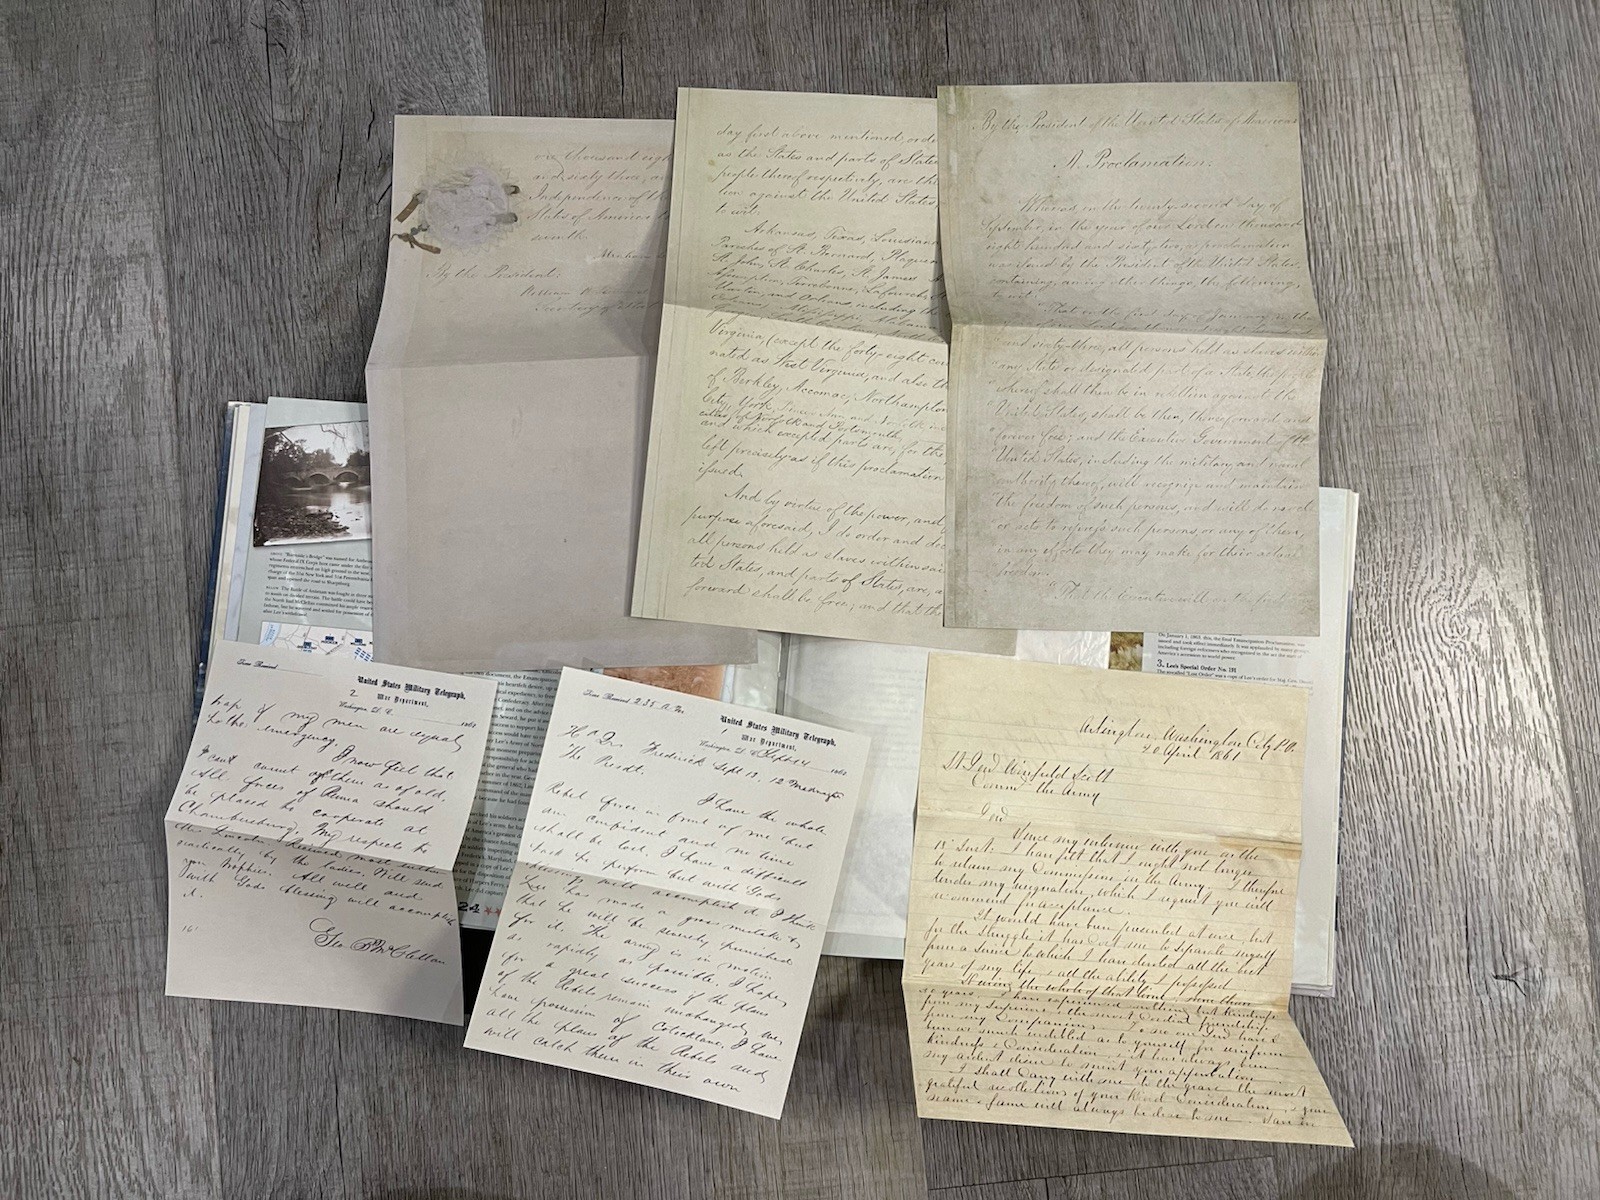 one thousand eigh
and sixty three, a
Independence of t
States of America t
seventh.
Abraham
By the President:
William H.
Secretary of Stat
day first above mentioned, orde
as the States and parts of States
people thereof respectively, are th
lion against the United States,
to wit:
Arkansas, Texas, Louisiana
Parishes of St. Bernard, Plaquem
St. John, St. Charles, St. James
Assumption, Terrebonne, Lafourche
Martin, and Orleans, including the
Mississippi, Alabama
Virginia, (except the forty-eight cou
nated as West Virginia, and also th
of Berkley, Accomac, Northampton
City, York, Princess Ann, and Norfolk, in
cities of Norfolk and Portsmouth
and which excepted parts are, for the
left precisely as if this proclamation
issued.
And by virtue of the power, and
purpose aforesaid, I do order and dec
all persons held as slaves within sai
ted States, and parts of States, are, a
forward shall be free; and that th
By the President of the United States of America:
A Proclamation.
Whereas, on the twenty-second day of
September, in the year of our Lord one thousand
eight hundred and sixty two, a proclamation
was issued by the President of the United States,
containing, among other things, the following,
to wit:
"That on the first day of January, in the
and sixty-three, all persons held as slaves within
any State or designated part of a State, the people
whereof shall then be in rebellion against the
United States, shall be then, thenceforward, and
forever free; and the Executive Government of the
United States, including the military and naval
authority thereof, will recognize and maintain
the freedom of such persons, and will do no act
or acts to repress such persons, or any of them,
in any efforts they may make for their actual
freedom.
"That the Executive will, on the first
ABOVE "Burnside's Bridge" was named for
On January 1, 1863, this, the final Emancipation Proclamation, was
issued and took effect immediately. It was applauded by many groups,
including foreign
America's accession to world power.
3. Lee's Special Order No. 191
Time Received
United States Military Telegraph,
War Department,
2
Washington, D. C. 186
hap if my men are equal
to the emergency. I now feel that
I can count on them as of old.
All forces of Penna should
be placed to cooperate at
Chambersburg. My respects to
Mrs Lincoln. Received most enthusi
astically by the ladies. Will send
you trophies. All well and
with Gods blessing will accomplish
it.
Geo B McClellan
161
24
Time Received 2.35 A.M.
United States Military Telegraph,
War Department,
Washington, D. C. Sept 14 1862
Hd Qrs Frederick Sept 13. 12 Midnight
The Presdt.
I have the whole
Rebel force in front of me but
am confident and no time
shall be lost. I have a difficult
task to perform but with Gods
blessing will accomplish it. I think
Lee has made a gross mistake &
that he will be severely punished
for it. The army is in motion
as rapidly as possible. I hope
for a great success if the plans
of the Rebels remain unchanged. We
have possession of Cotocktane. I have
all the plans of the Rebels and
will catch them in their own
Arlington, Washington City P.O.
20 April 1861
Lt. Genl Winfield Scott
Commd the Army
Genl
Since my interview with you on the
18 Inst: I have felt that I ought not longer
to retain my Commission in the Army. I therefore
tender my resignation, which I request you will
recommend for acceptance.
It would have been presented at once, but
for the struggle it has cost me to separate myself
from a Service to which I have devoted all the best
years of my life & all the ability I possessed
During the whole of that time, more than
30 years, I have experienced nothing but kindness
from my superiors, & the most Cordial friendship
from my Companions. To no one Genl have I
been as much indebted as to yourself for uniform
kindness & Consideration, & it has always been
my ardent desire to merit your approbation.
I shall carry with me to the grave the most
grateful recollections of your kind Consideration, & your
name & fame will always be dear to me.